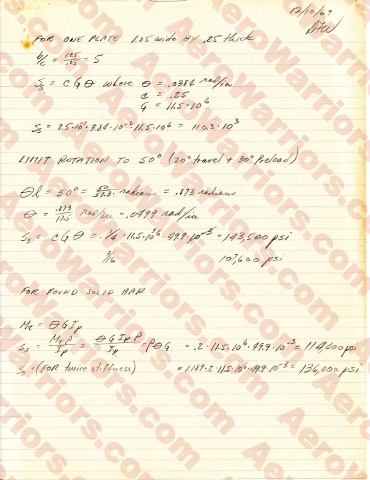 12/10/69
FOR ONE PLATE 1.25 wide BY .25 thick
b/c = 1.25/.25 = 5
Ss = c G θ where θ = .0384 rad/in
c = .25
G = 11.5·10⁶
Ss = 25·10⁻²·3.84·10⁻²·11.5·10⁶ = 110.3·10³
LIMIT ROTATION TO 50° (20° travel + 30° Preload)
θl = 50° = 50/57.3 · radians = .873 radians
θ = .873/17.5 rad/in = .0499 rad/in
Ss = c G θ = 1/4 · 11.5·10⁶ · 49.9·10⁻³ = 143,500 psi
3/16 107,600 psi
FOR ROUND SOLID BAR
Mt = θ G Ip
Ss = Mt ρ/Ip = θ G Ip ρ/Ip = ρ θ G = .2 · 11.5·10⁶ · 49.9·10⁻³ = 114,600 psi
Ss = (FOR twice stiffness) = 1.189·.2·11.5·10⁶·49.9·10⁻³ = 136,000 psi
AeroWarriors.com